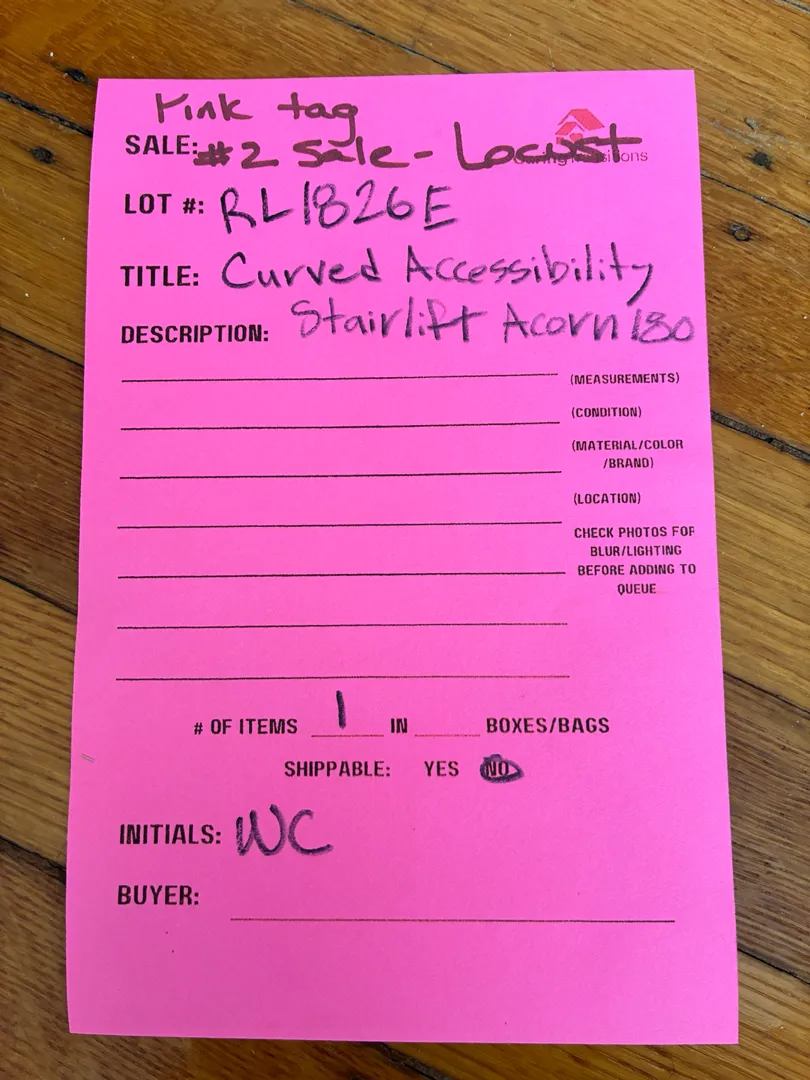 Pink tag
SALE: #2 Sale - Locust
LOT #: RL1826E
TITLE: Curved Accessibility
DESCRIPTION: Stairlift Acorn 180
(MEASUREMENTS)
(CONDITION)
(MATERIAL/COLOR
/BRAND)
(LOCATION)
CHECK PHOTOS FOR
BLUR/LIGHTING
BEFORE ADDING TO
QUEUE
# OF ITEMS 1 IN BOXES/BAGS
SHIPPABLE: YES NO
INITIALS: WC
BUYER: